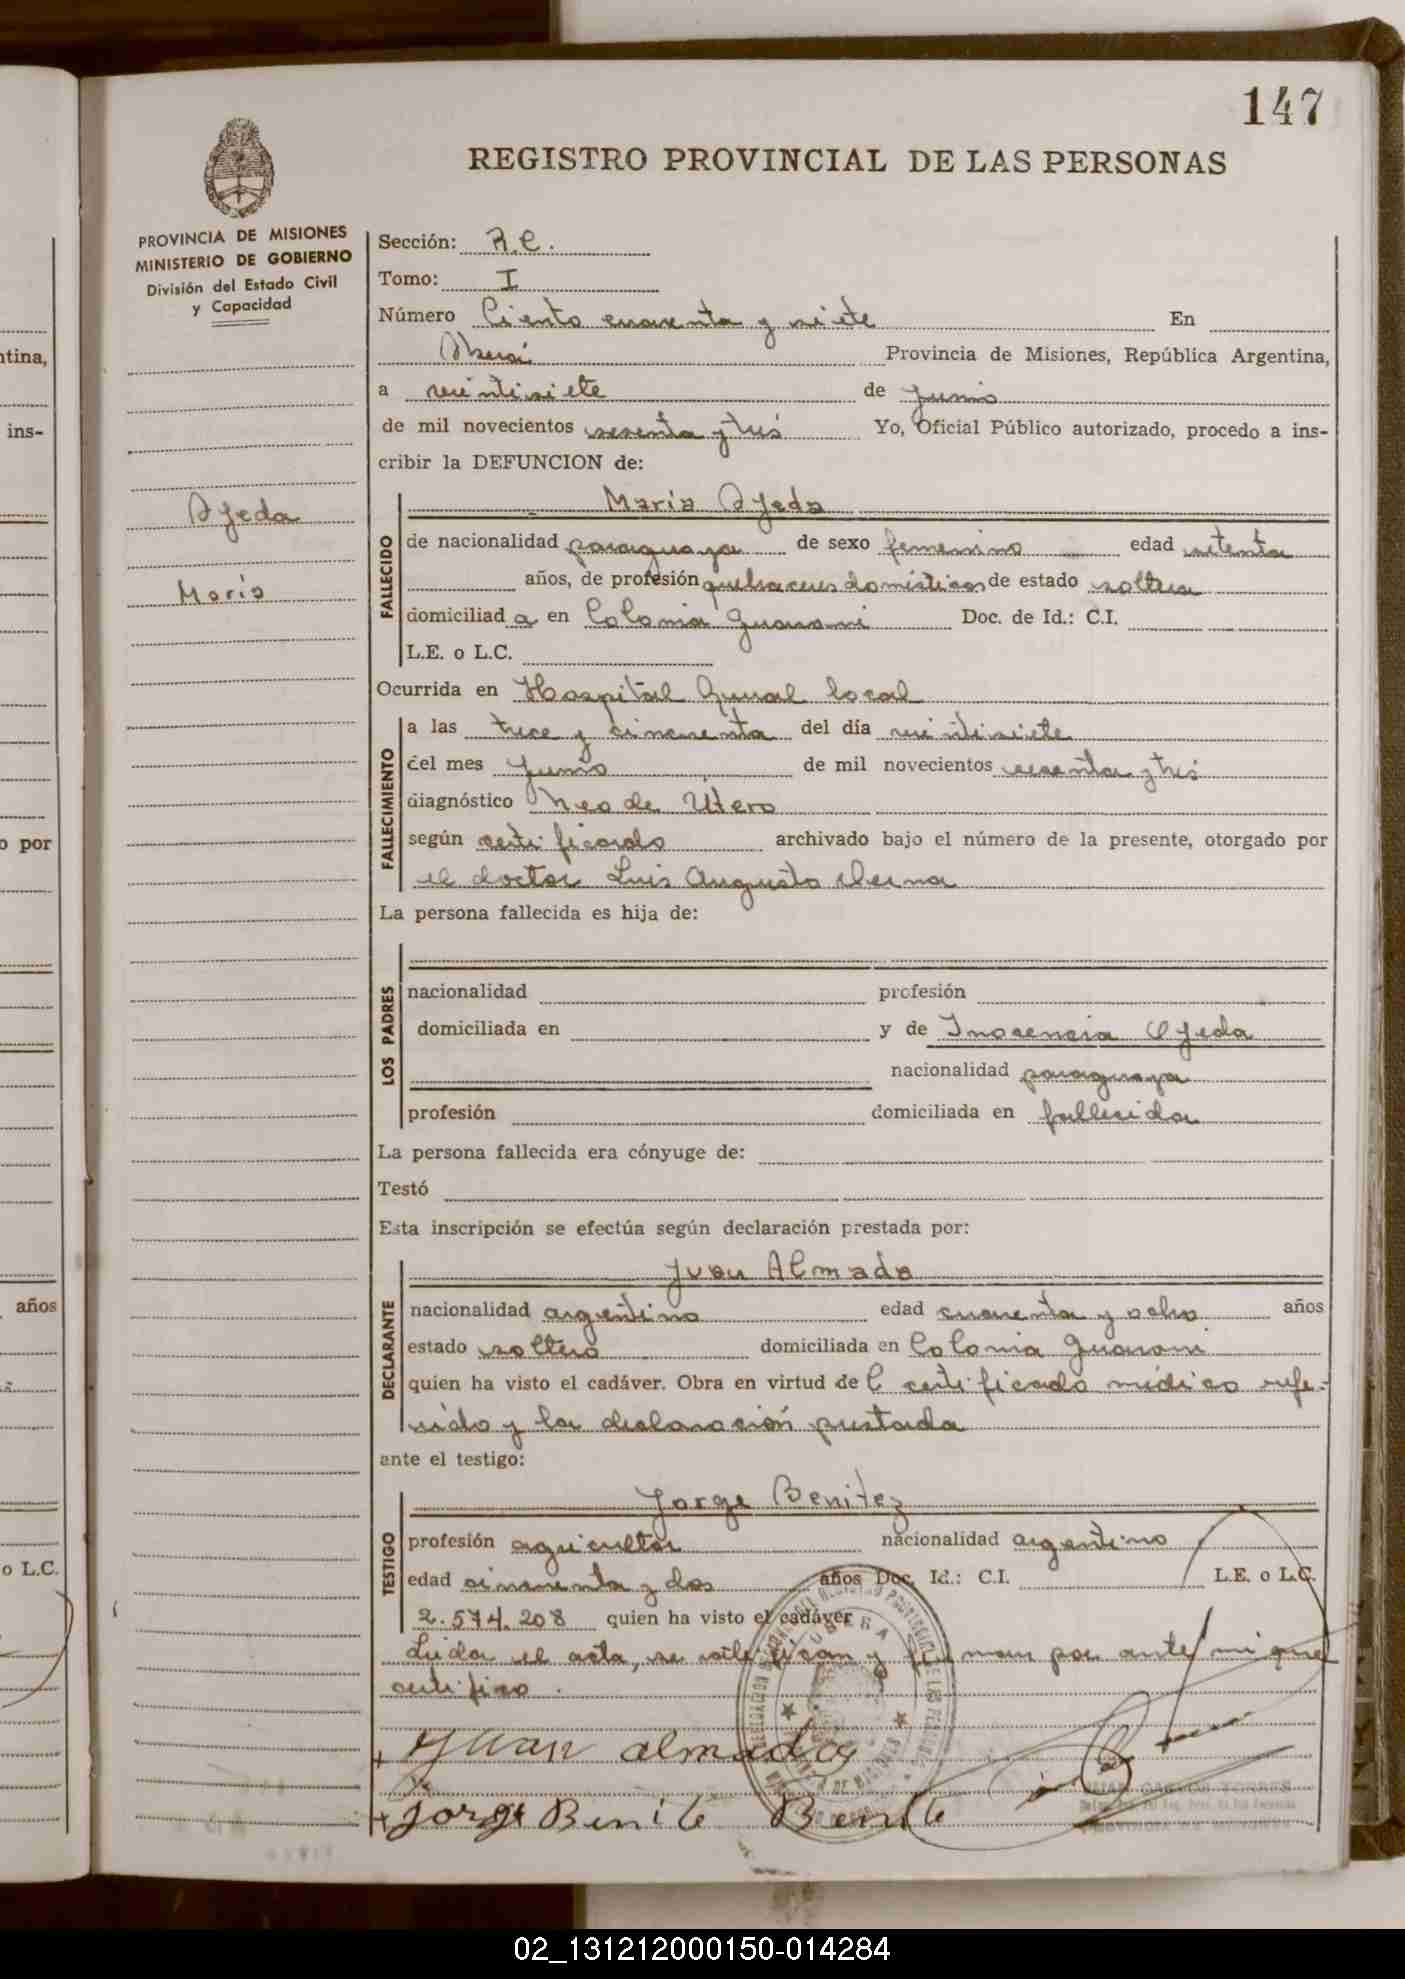 147
REGISTRO PROVINCIAL DE LAS PERSONAS
PROVINCIA DE MISIONES
MINISTERIO DE GOBIERNO
División del Estado Civil
y Capacidad
Sección: R.C.
Tomo: I
Número Ciento cuarenta y siete En
Oberá Provincia de Misiones, República Argentina,
a veintisiete de junio
de mil novecientos sesenta y tres Yo, Oficial Público autorizado, procedo a ins-
cribir la DEFUNCION de:
Ojeda
María
FALLECIDO
María Ojeda
de nacionalidad paraguaya de sexo femenino edad setenta
años, de profesión quehaceres domésticos de estado soltera
domiciliad a en Colonia Guarani Doc. de Id.: C.I.
L.E. o L.C.
Ocurrida en Hospital Gural local
FALLECIMIENTO
a las trece y cincuenta del día veintisiete
del mes junio de mil novecientos sesenta y tres
diagnóstico Neo de Utero
según certificado archivado bajo el número de la presente, otorgado por
el doctor Luis Augusto
La persona fallecida es hija de:
LOS PADRES
nacionalidad profesión
domiciliada en y de Inocencia Ojeda
nacionalidad paraguaya
profesión domiciliada en fallecida
La persona fallecida era cónyuge de:
Testó
Esta inscripción se efectúa según declaración prestada por:
DECLARANTE
Juan Almada
nacionalidad argentino edad cuarenta y ocho años
estado soltero domiciliada en Colonia Guarani
quien ha visto el cadáver. Obra en virtud de l certificado médico refe-
rido y la declaración prestada
ante el testigo:
TESTIGO
Jorge Benitez
profesión agricultor nacionalidad argentino
edad cincuenta y dos años Doc. Id.: C.I. L.E. o L.C.
2.574.208 quien ha visto el cadáver
Leida el acta, se ratifican y firman por ante mi que
certifico.
Juan almada
Jorge Benite Benite
OBERA
JUAN CARLOS TORRES
PROVINCIA DE MISIONES
tina,
ins-
o por
años
o L.C.
02_131212000150-014284